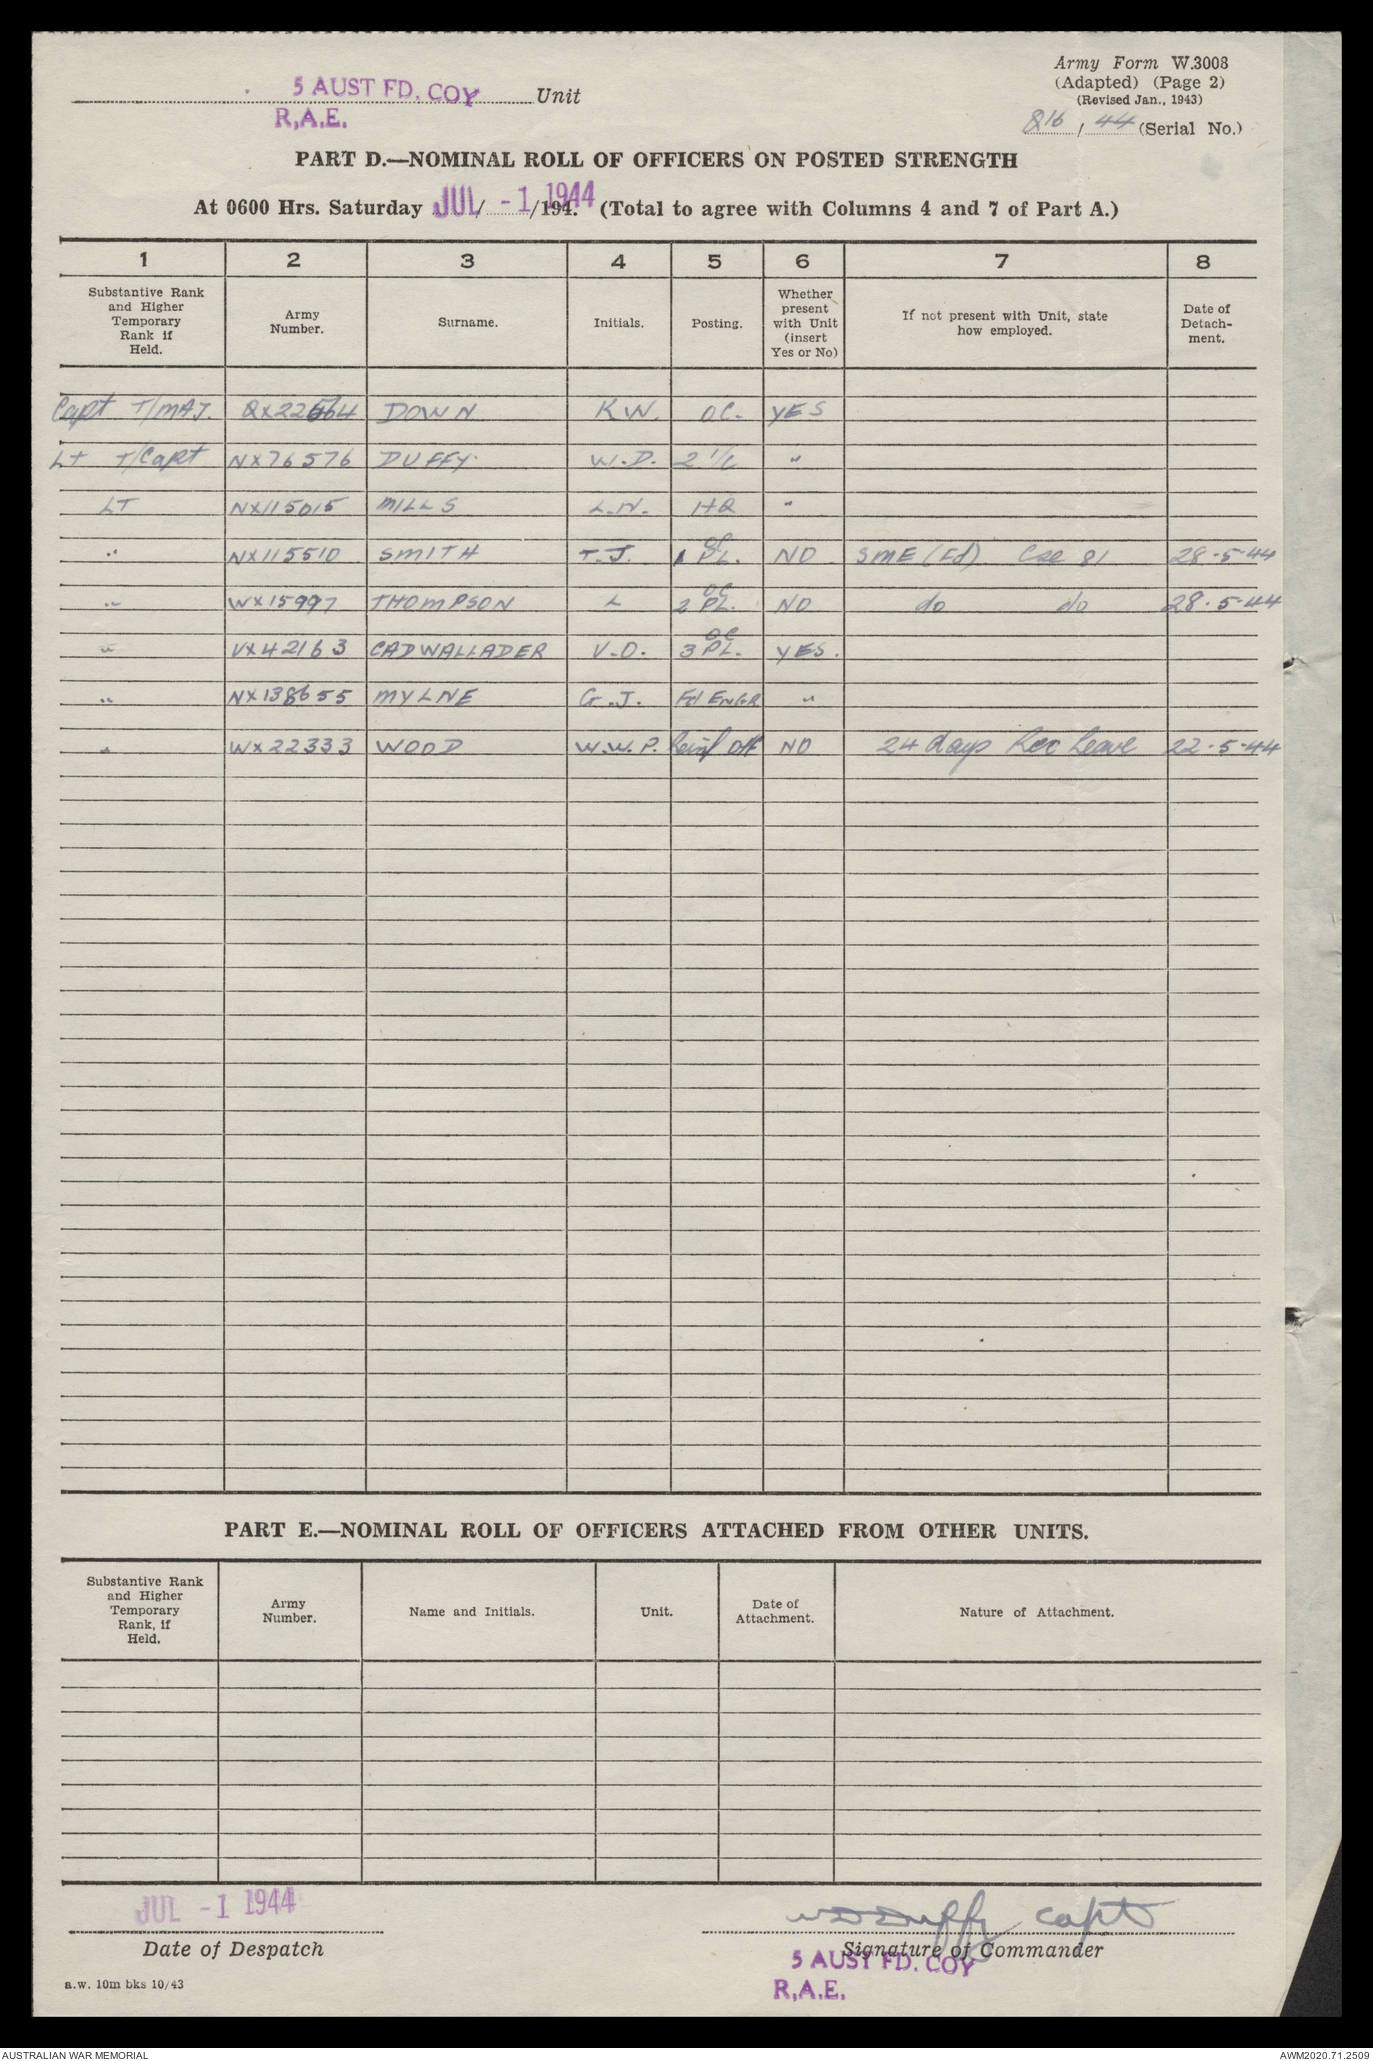 Army Form W.3008
(Adapted) (Page 2)
(Revised Jan., 1943)
5 AUST FD. COY Unit
R.A.E.
816 / 44 (Serial No.)
PART D.—NOMINAL ROLL OF OFFICERS ON POSTED STRENGTH
At 0600 Hrs. Saturday JUL / -1 /194. 1944 (Total to agree with Columns 4 and 7 of Part A.)
1 2 3 4 5 6 7 8
Substantive Rank and Higher Temporary Rank if Held. Army Number. Surname. Initials. Posting. Whether present with Unit (insert Yes or No) If not present with Unit, state how employed. Date of Detach-ment.
Capt T/MAJ. DOWN K W. OC. YES
Lt T/Capt NX76576 DUFFY. W.D. 2 I/C "
LT NX115015 MILLS L.N. HQ "
" NX115510 SMITH T.J. OC 1 PL. NO SME (Fd) Cse 81 28-5-44
" WX15997 THOMPSON L OC 2 PL. NO do do 28-5-44
" VX42163 CADWALLADER V.O. OC 3 PL. YES.
" NX138655 MYLNE G.J. Fd ENGR "
" WX22333 WOOD W.W.P. Reinf Off NO 24 days Rec Leave 22-5-44
PART E.—NOMINAL ROLL OF OFFICERS ATTACHED FROM OTHER UNITS.
Substantive Rank and Higher Temporary Rank, if Held. Army Number. Name and Initials. Unit. Date of Attachment. Nature of Attachment.
JUL -1 1944 WD Duffy Capt
Date of Despatch Signature of Commander
5 AUST FD. COY
R.A.E.
a.w. 10m bks 10/43
AUSTRALIAN WAR MEMORIAL AWM2020.71.2509